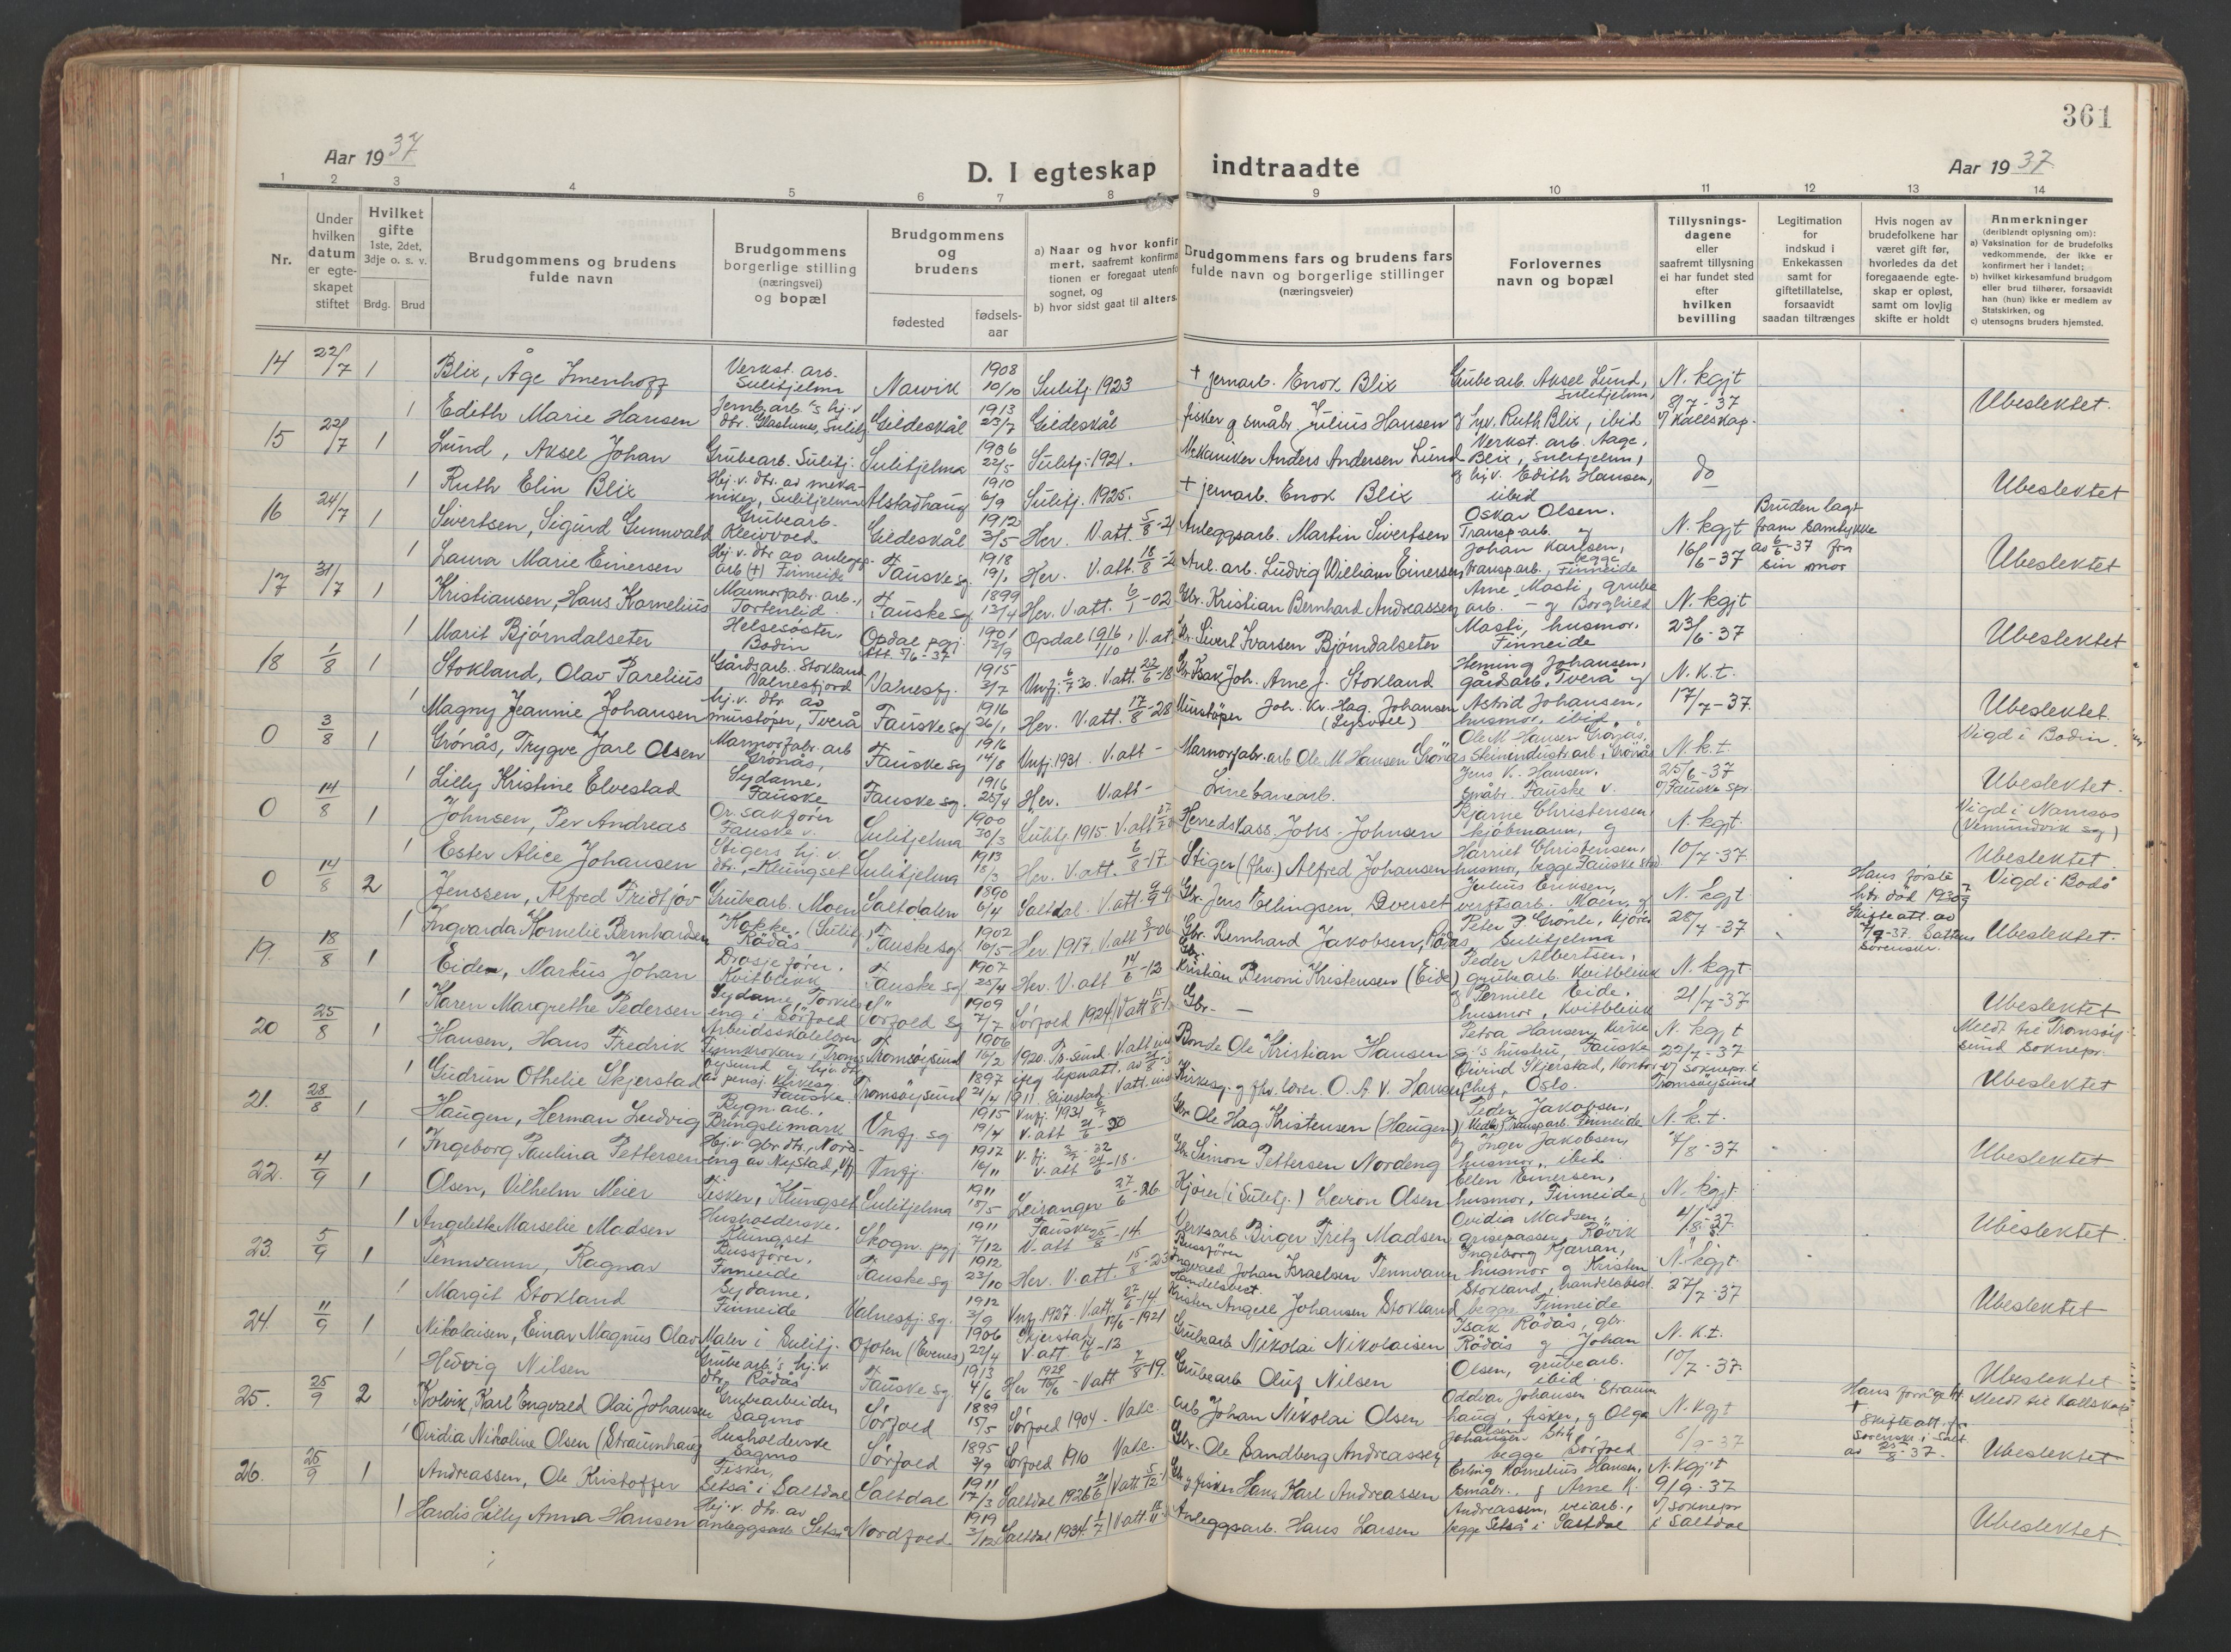 361
Aar 1937
D. I egteskap indtraadte
Aar 1937
1 2 3 4 5 6 7 8 9 10 11 12 13 14
Nr.
Under hvilken datum er egteskapet stiftet
Hvilket gifte
1ste, 2det, 3dje o. s. v.
Brdg. Brud
Brudgommens og brudens fulde navn
Brudgommens borgerlige stilling (næringsvei) og bopæl
Brudgommens og brudens
fødested
fødselsaar
a) Naar og hvor konfirmert, saafremt konfirmationen er foregaat utenfor sognet, og
b) hvor sidst gaat til alters.
Brudgommens fars og brudens fars fulde navn og borgerlige stillinger (næringsveier)
Forlovernes navn og bopæl
Tillysningsdagene eller saafremt tillysning ei har fundet sted efter hvilken bevilling
Legitimation for indskud i Enkekassen samt for giftetillatelse, forsaavidt saadan tiltrænges
Hvis nogen av brudefolkene har været gift før, hvorledes da det foregaaende egteskap er opløst, samt om lovlig skifte er holdt
Anmerkninger
(deriblandt oplysning om):
a) Vaksination for de brudefolks vedkommende, der ikke er konfirmert her i landet;
b) hvilket kirkesamfund brudgom eller brud tilhører, forsaavidt han (hun) ikke er medlem av Statskirken, og
c) utensogns bruders hjemsted.
14 22/7 1 Blix, Åge Imenhoff Verkst. arb. Sulitjelma Narvik 1908 10/10 Sulitj. 1923 + jernarb. Enok Blix Grubearb. Aksel Lund, Sulitjelma, N. kgjt
1 Edith Marie Hansen Gildeskål 1913 23/7 Gildeskål fisker g småbr. Julius Hansen g hv. Ruth Blix, ibid 8/7-37 Ubeslektet.
15 22/7 1 Lund, Aksel Johan Grubearb. Sulitj. Sulitjelma 1906 22/5 Sulitj. 1921. Mekaniker Anders Andersen Lund Verkst. arb. Aage Blix, Sulitjelm,
1 Ruth Elin Blix Hj.v. dtr. av mekaniker, Sulitjelma Alstadhaug 1910 6/9 Sulitj. 1925. + jernarb. Enok Blix g hj.v. Edith Hansen, ibid do Ubeslektet
16 24/7 1 Sivertsen, Sigurd Gunnvald Grubearb. Kleivvoed Gildeskål 1912 3/5 Her. V. att. Anleggsarb. Martin Sivertsen Oskar Olsen. Transp. arb. g N. kgjt Bruden lagt fram samtykke
1 Laura Marie Einersen Hj.v. dtr. av anleggsarb (+) Finneide Fauske sg. 1918 19/1 Her. V. att. Anl. arb. Ludvig William Einersen Johan Karlsen, transp arb., begge Finneide 16/6-37 av 6/6-37 fra sin mor Ubeslektet
17 31/7 1 Kristiansen, Hans Kornelius Marmorfabr. arb., Tortenlid. Fauske sg 1899 13/4 Her. V. att. 6/1-02 Gbr. Kristian Bernhard Andreassen Arne Mosti, grubearb. g Borghild N. kgjt
1 Marit Bjørndalseter Helsesøster, Bodin Opdal pgj. 1901 12/9 Opdal 1916 1/10, V. att Gbr. Sivert Ivarsen Bjørndalseter Mosti, husmor. Finneide 23/6-37 Ubeslektet
18 1/8 1 Stokland, Olav Parelius Gårdsarb. Stokland Valnesfjord Valnesfj. 1915 3/7 Vnfj. V. att. Gbr. Isak Joh. Arne J. Stokland Heming Johansen, gårdsarb, Tverå g N. K. t.
1 Magny Jeannie Johansen hj.v. dtr. av murstøper, Tverå Fauske sg 1916 26/1 Her. V. att. 17/8-28 Murstøper Joh. Kr. Hag. Johansen Astrid Johansen, husmor, ibid. 17/7-37. Ubeslektet.
0 3/8 1 Grønås, Trygve Jarl Olsen Marmorfabr. arb Grønås, Fauske sg 1916 14/8 Vnfj. 1931. V. att - Marmorfabr. arb Ole M Hansen Grønås Ole M Hansen Grønås, Steinindustr arb, Grønås N. k. t. Vigd i Bodin.
1 Lilly Kristine Elvestad Sydame, Fauske Fauske sg. 1916 25/4 Her. V. att - Linebanearb. Jens K. Hansen. småbr. Fauske v. 25/6-37 Ubeslektet.
0 14/8 1 Johnsen, Per Andreas Or. sakfører Fauske v. Sulitjelma 1900 30/3 Sulitj. 1915 V. att Herredskass. Johs. Johnsen Bjarne Christensen, kjøbmann, g N. kgjt. Vigd i Namsos (Vemundvik sg)
1 Ester Alice Johansen Stigers hj.v. dtr., Klungset Sulitjelma 1913 18/3 Her. V. att. 6/8-17. Stiger (fhv.) Alfred Johansen Harriet Christensen, husmor, begge Fauske sted 10/7-37. Ubeslektet.
0 14/8 2 Jenssen, Alfred Fridtjov Grubearb. Moen Saltdalen 1890 6/4 Saltdal. V. att. Gbr. Jens Ellingsen, Dverset Julius Eriksen, verftsarb. Moen, g N. kgjt Hans første htr. död 1930 Vigd i Bodö
1 Ingvarda Kornelie Bernhardsen Kokke. (Sulitj.) Rödås Fauske sg. 1902 16/5 Her. 1917. V. att Gbr. Bernhard Jakobsen, Rödås Peter P. Grönli, kjörer, Sulitjelma 28/7-37 Skifteatt. av 7/9-37. Saltens Sorenskr. Ubeslektet.
19. 18/8 1 Eiden, Markus Johan Drosjefører. Kvitblikk Fauske sg 1907 25/4 Her. V. att 14/6-12 Gbr. Kristian Benoni Kristensen (Eide) Peder Albertsen, grubearb. Kvitblikk N. kgjt.
1 Karen Margrethe Pedersen Sydame, Torkilseng i Sörfold Sörfold sg 1909 7/7 Sörfold 1924 / V att Gbr. - g Pernille Eide. husmor, Kvitblikk 21/7-37 Ubeslektet
20 25/8 1 Hansen, Hans Fredrik Tromsöysund 1906 16/2 Bonde Ole Kristian Hansen Petra Hansen, kirkesg.'s hustru, Fauske N. kgjt Meldt til Tromsöysund soknepr.
1 Gudrun Othelie Skjerstad av pensj. kirkesg. Fauske. Tromsöysund 1897 21/4 Kirkesg. g fhv. lærer. O. A. V. Hansen Eivind Skjerstad, kontorchef, Oslo. 22/7-37 Ubeslektet
21. 28/8 1 Haugen, Herman Ludvig Bygn. arb., Bringslimark Vnfj sg 1915 19/4 Vnfj. 1931 V. att Gbr Ole Hag Kristensen (Haugen) Peder Jakobsen, transp arb. Finneide N. k. t.
1 Ingeborg Paulina Pettersen Hj.v. gbr. dtr., Nordeng av Nystad, Vfj Vnfj. 1917 16/11 V. fj. V. att Gbr. Simon Pettersen Nordeng g Inger Jakobsen, husmor, ibid 4/8-37 Ubeslektet
22. 4/9 1 Olsen, Vilhelm Meier Fisker, Klungset Sulitjelma 1911 18/5 Leiranger 27/6-26. Kjører (i Sulitj.) Levion Olsen Ellen Einersen, husmor, Finneide, N. kgjt.
1 Angelette Marselie Madsen Husholderske. Klungset Skogn. pgj. 1911 7/12 Fauske V. att 25/8-14. Verksarb Birger Fritz Madsen Ovidia Madsen, Rövik 4/8-37. Ubeslektet.
23. 5/9 1 Tennvann, Ragnar Bussfører, Finneide Fauske sg 1912 23/10 Her. V. att. 15/8-23 Bussfører Ingvald Johan Israelsen Tennvann Ingeborg Kjærran, husmor g Kristen N. kgjt.
1 Margit Stokland Sydame, Finneide Valnesfj. sg. 1912 3/9 Vnfj. 1927. V. att. 27/6-14. Handelsbest. Kristen Angell Johansen Stokland Stokland, handelsbest. begge Finneide 27/7-37 Ubeslektet
24. 11/9 1 Nikolaisen, Einar Magnus Olav Maler i Sulitj. Ofoten (Evenes) 1906 22/4 Skjerstad 12/6-1921 V. att. 14/6-12 Grubearb Nikolai Nikolaisen Isak Rödås, gbr. Rödås g Johan N. k. t.
1 Hedvig Nilsen Grubearb's hj.v. dtr. Rödås Fauske sg. 1913 4/6 Her V att 7/8-19. Grubearb Oluf Nilsen Olsen, grubearb. ibid. 10/7-37. Ubeslektet
25. 25/9 2 Kolvik, Karl Engvald Olai Johansen Grubearbeider, Sagmo Sörfold 1889 15/5 Sörfold 1904. Vakc. arb Johan Nikolai Olsen Oddvar Johansen Straumhaug, fisker, g Olga N. kgjt Hans forrige htr. + Meldt til Kallskap
1 Ovidia Nikoline Olsen (Straumhaug) Husholderske Sagmo Sörfold 1895 3/9 Sörfold 1910 Vakc. Gbr. Ole Sandberg Andreassen begge Sörfold 6/9-37 Skifteatt. fra Sorenskr. i Salt. av 25/8-37. Ubeslektet
26. 25/9 1 Andreassen, Ole Kristoffer Fisker, Setså i Saltdal Saltdal 1911 17/3 Saltdal 1926 V att Gbr. g fisker Hans Karl Andreassen Erling Kornelius Hansen, småbr., g Arne K. N. kgjt 9/9-37
1 Hardis Lilly Anna Hansen Hj.v. dtr. av anleggsarb. Setså Nordfold 1919 3/12 Saltdal 1934 1/7 / V att. Anleggsarb. Hans Larsen Andreassen, veiarb., begge Setså i Saltdal v/ soknepr i Saltdal Ubeslektet.